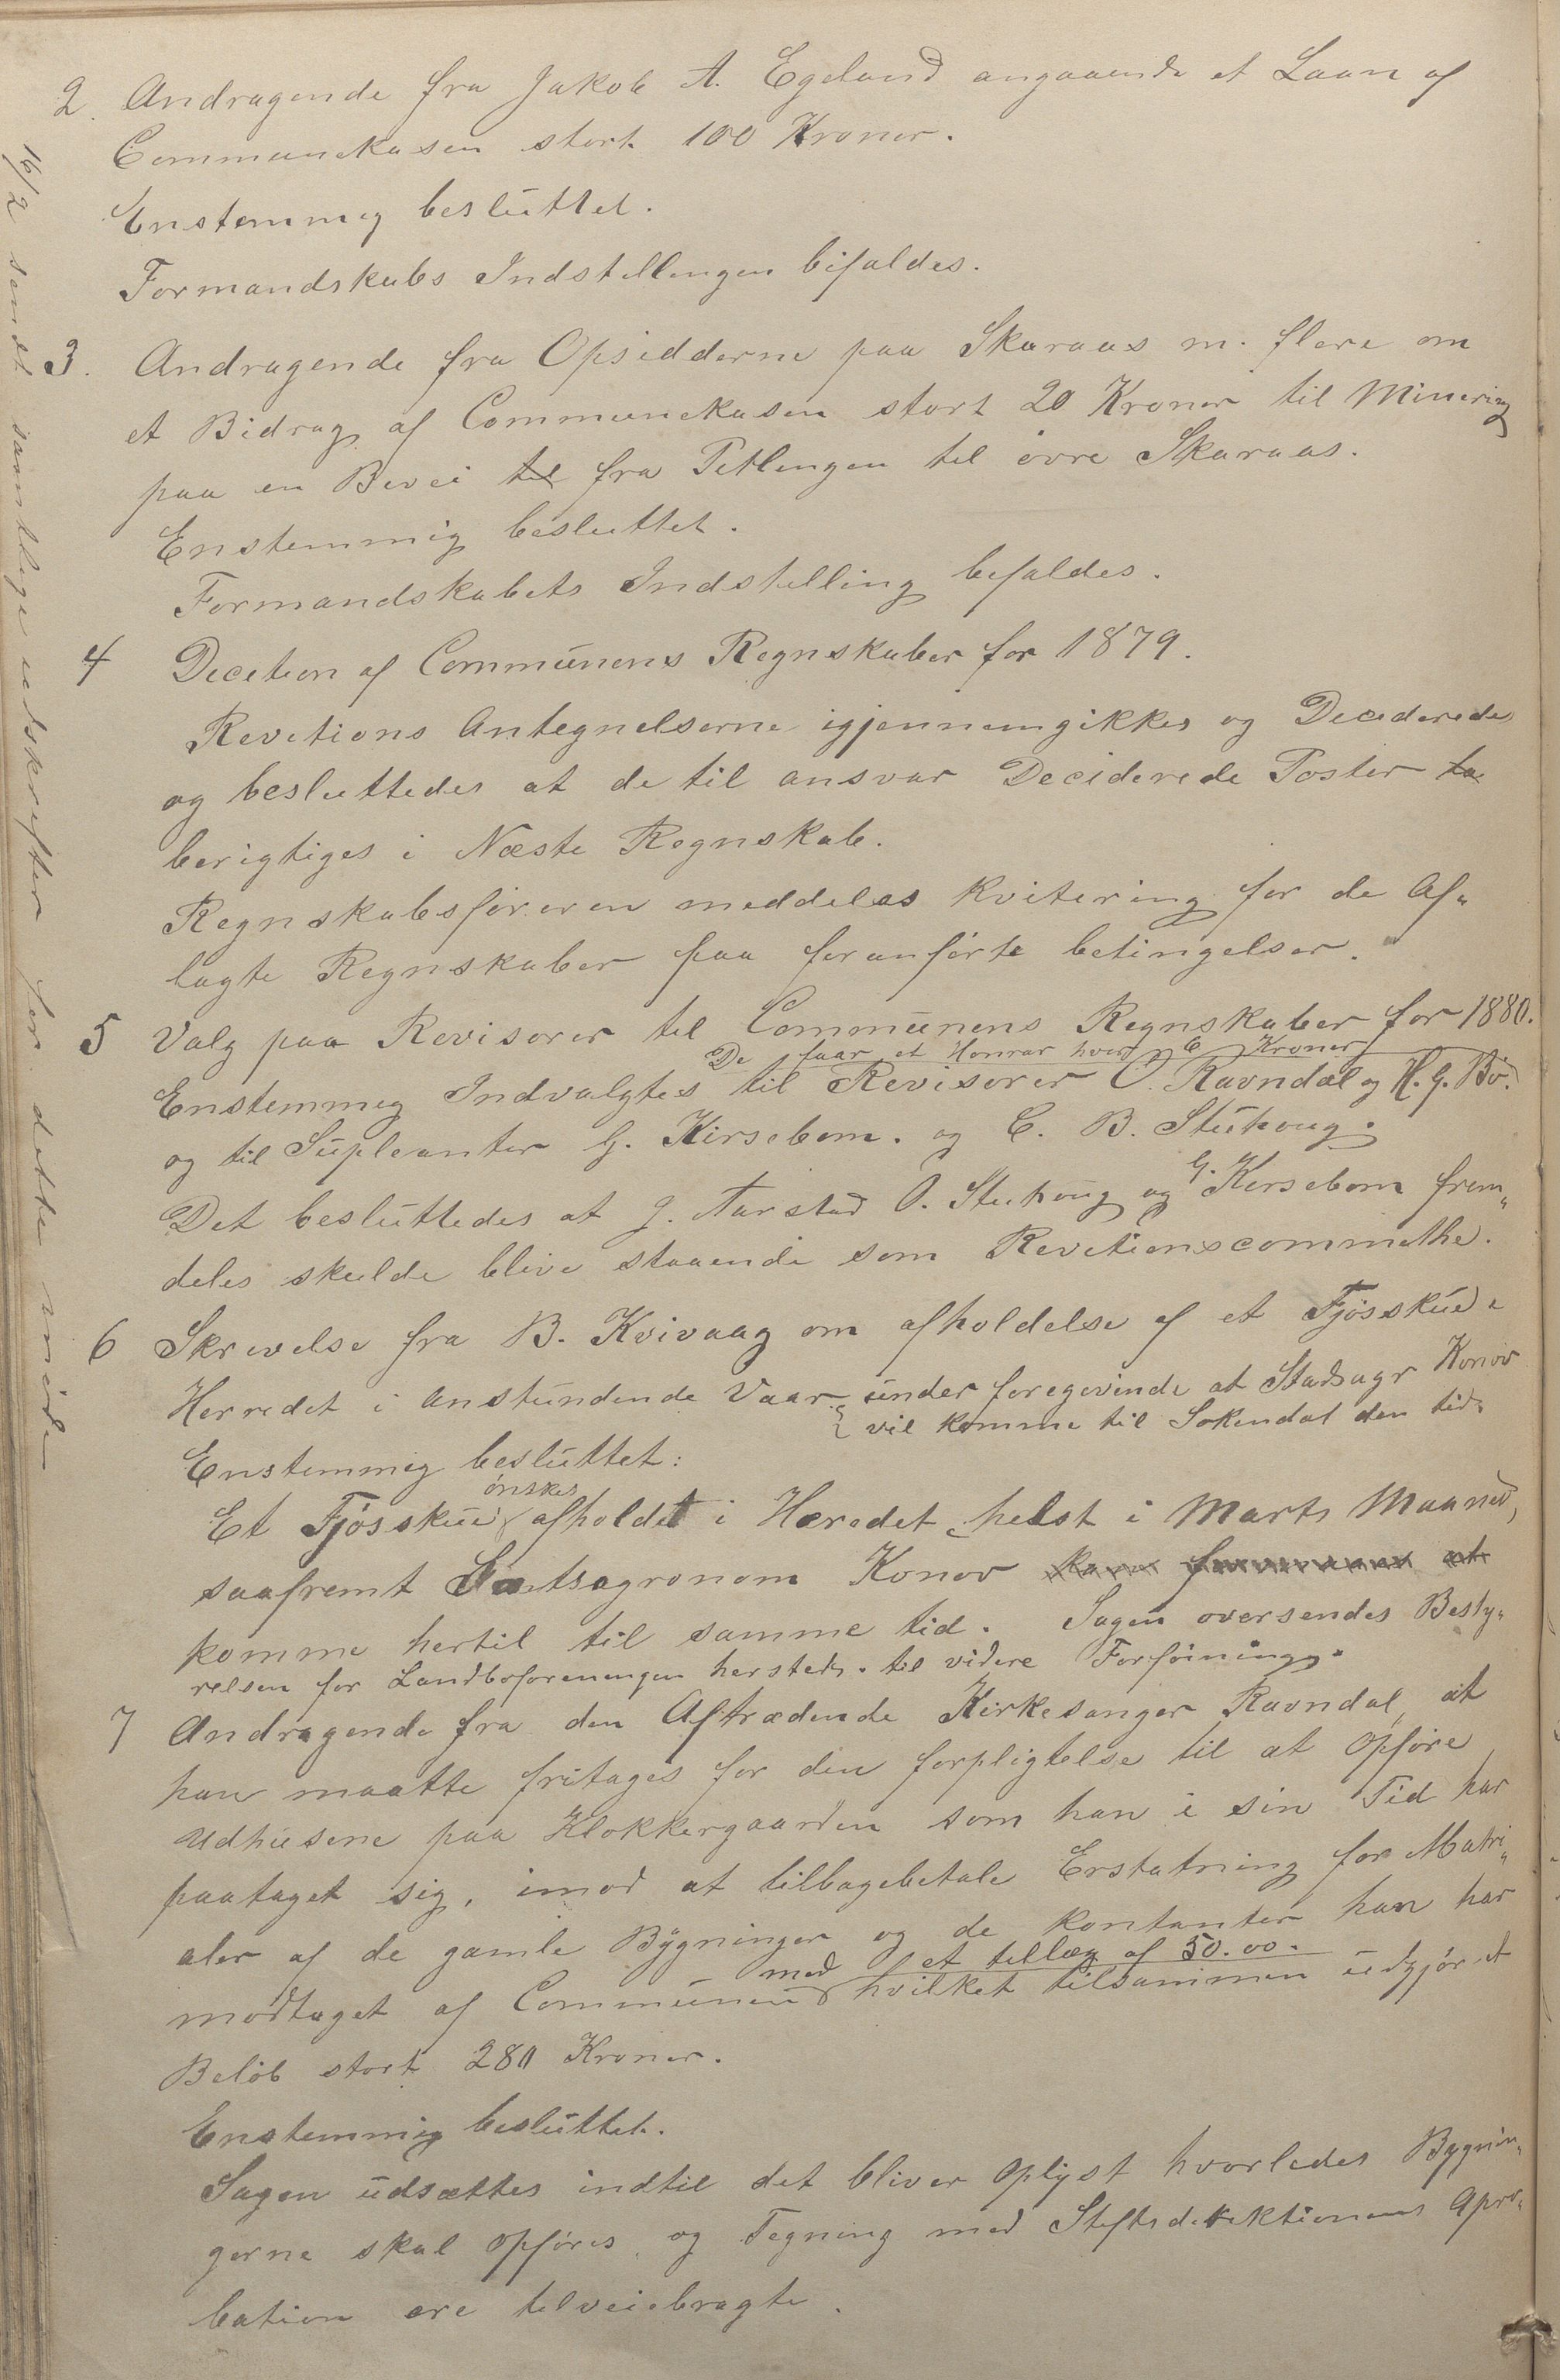 2. Andragende fra Jakob A. Egeland angaaende et Laan af
Communekasen stort 100 Kroner.
Enstemmig besluttet.
Formandskabs Indstillingen bifaldes.
3. Andragende fra Opsidderne paa Skaraas m. flere om
et Bidrag af Communekasen stort 20 Kroner til Minering
paa en Bevei til fra Petlingen til øvre Skaraas.
Enstemmig besluttet.
Formandskabets Indstelling befaldes.
4 Decetion af Communens Regnskaber for 1879.
Revetions Antegnelserne igjennemgikkes og Deciderede
og besluttedes at de til ansvar Deciderede Poster ta
berigtiges i Næste Regnskab.
Regnskabsføreren meddeles Kvitering for de Af„
lagte Regnskaber paa foranførte betingelser.
5 Valg paa Revisorer til Communens Regnskaber for 1880.
De faar et Honrar hver 6 Kroner
Enstemmig Indvalgtes til Revisorer O. Ravndal og H. G. Bø.
og til Supleanter G. Kirsebom. og C. B. Stuhoug.
Det besluttedes at J. Aarstad O. Stuhoug og G. Kersebom frem„
deles skulde blive staaende som Revetionscommethe.
6 Skrevelse fra B. Kvivaag om afholdelse af et Fjøsskue i
Herredet i anstundende Vaar under foregevende at Stadsagr Konov
vil komme til Sokendal den tid.
Enstemmig besluttet:
ønskes
Et Fjøsskue afholdet i Heredet helst i Marts Maaned,
saafremt Amtsagronom Konov kan at
komme hertil til samme tid. Sagen oversendes Besty„
relsen for Landboforeningen hersteds. til videre Forføining.
7 Andragende fra den Aftrædende Kirkesanger Ravndal, at
han maatte fritages for den forpligtelse til at Opføre
Udhusene paa Klokkergaarden som han i sin Tid har
paataget sig, imod at tilbagebetale Erstatning for Matri„
aler af de gamle Bygninger og de kontanter han har
med et tellæg af 50.00.
modtaget af Communen hvilket tilsammen udgjør et
Beløb stort 280 Kroner.
Enstemmig besluttet.
Sagen udsættes indtil det bliver Oplyst hvorledes Bygnin„
gerne skal Opføres, og Tegning med Steftsderektionens Apro„
bation ere telveiebragte.
16/2 sendt samtlige udskrefter for dette møde